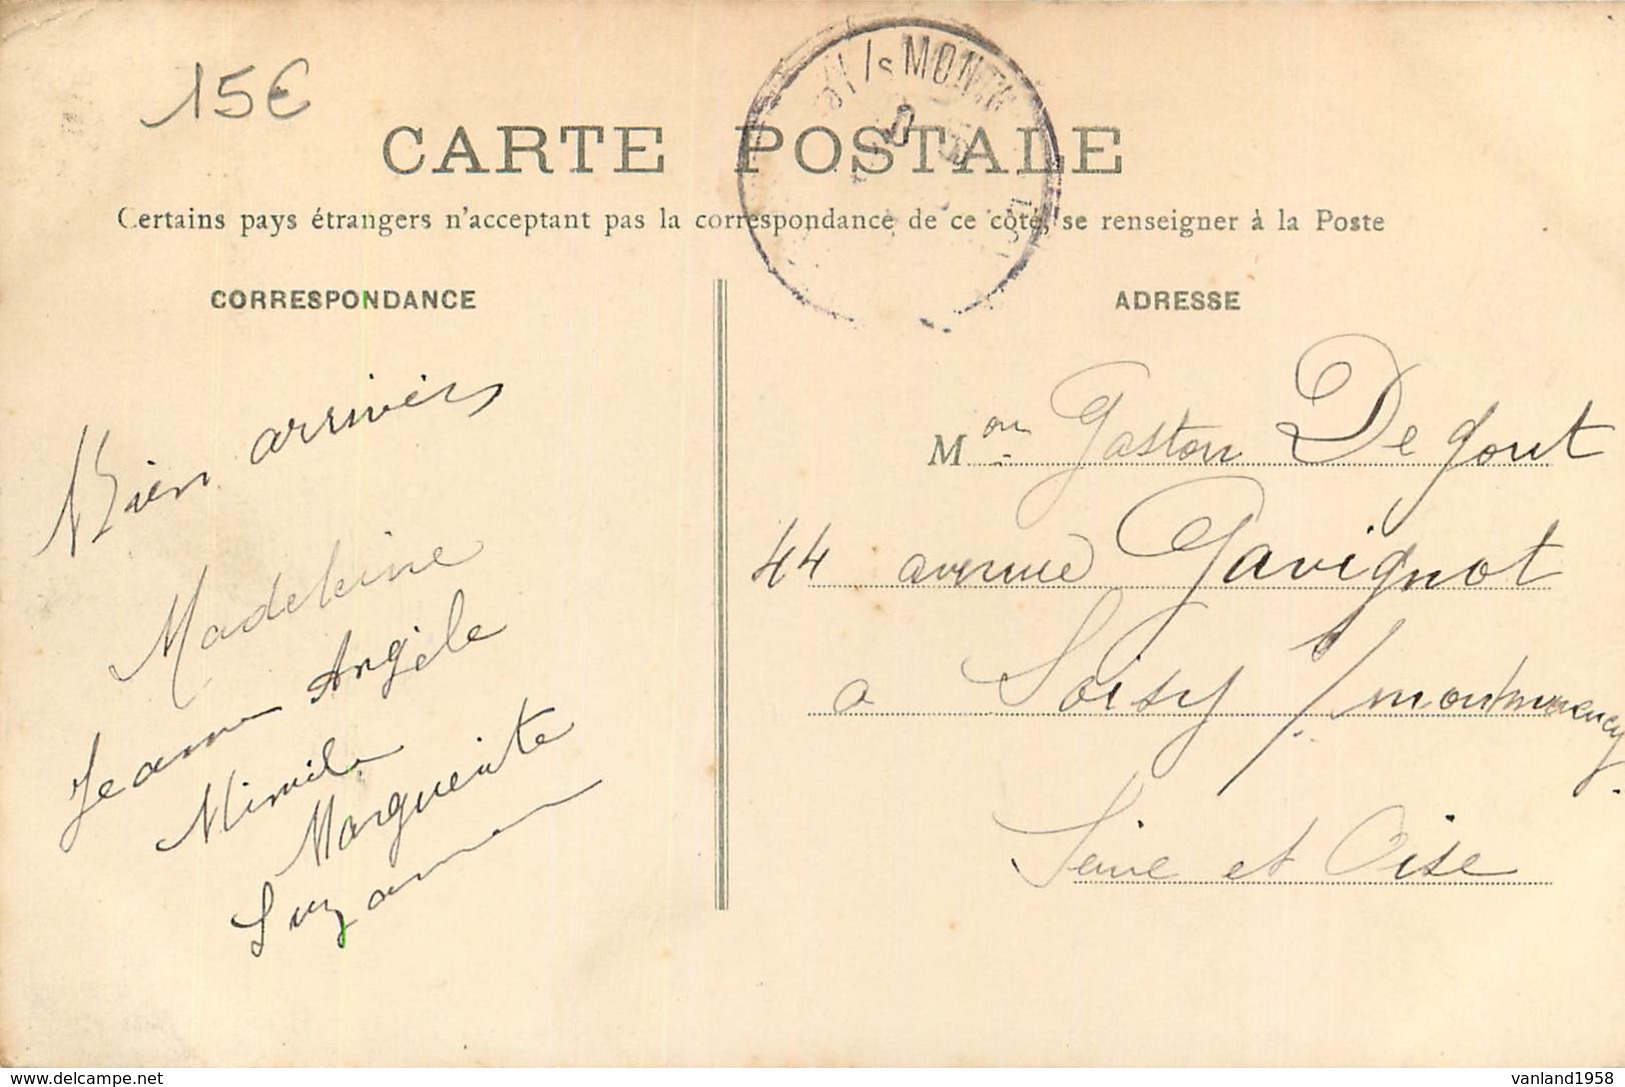 15€
CARTE POSTALE
Certains pays étrangers n'acceptant pas la correspondance de ce côté, se renseigner à la Poste
CORRESPONDANCE
Bien arrivées
Madeleine
Jeanne Angèle
Mimile
Marguerite
Suzanne
ADRESSE
Mon Gaston Degout
44 avenue Gavignot
a Soisy s/ montmorency
Seine et Oise
/s MONT
www.delcampe.net
vanland1958